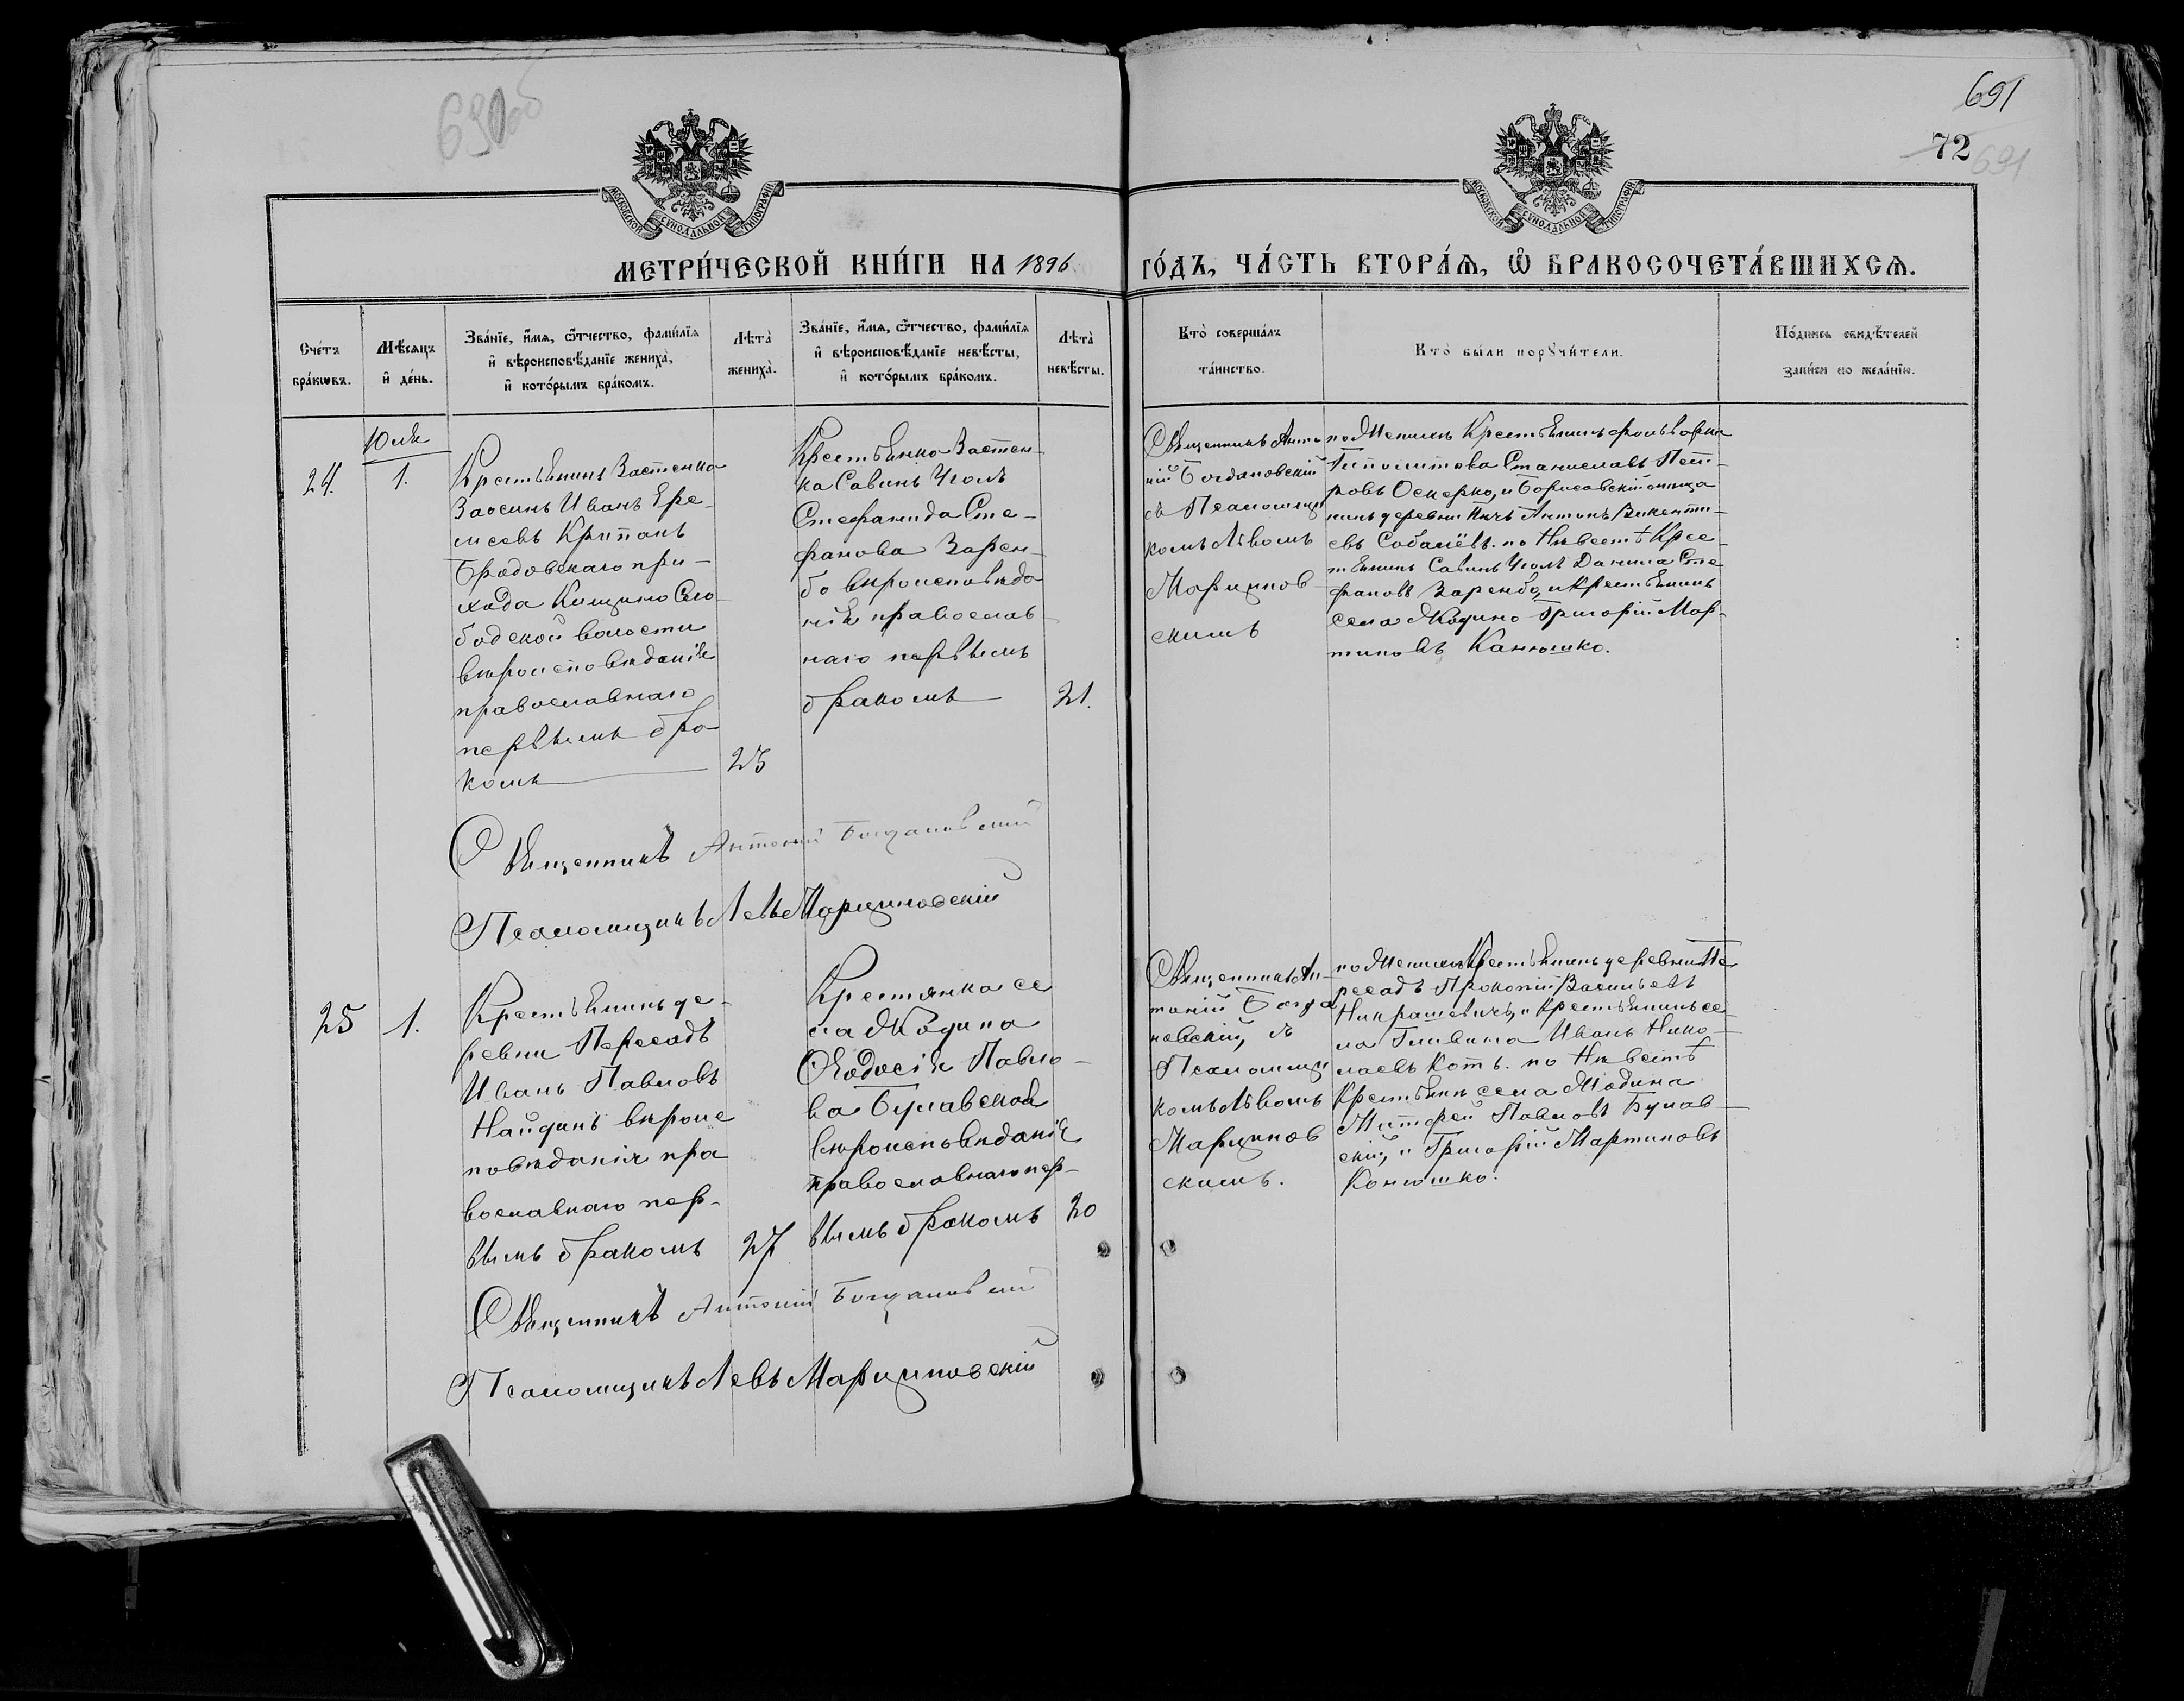 690об
691
72
691
МОСКОВСКОЙ СѴНОДАЛЬНОЙ ТИПОГРАФІИ
МОСКОВСКОЙ СѴНОДАЛЬНОЙ ТИПОГРАФІИ
МЕТРИ́ЧЕСКОЙ КНИ́ГИ НА 1896
ГО́ДЪ, ЧА́СТЬ ВТОРА́Ѧ, Ѽ БРАКОСОЧЕТА́ВШИХСѦ.
Сче́тъ
бра́кѡвъ.
Мѣ́сѧцъ
и҆ де́нь.
Зва́нїе, и҆́мѧ, ѻ҆́тчество, фами́лїѧ
и҆ вѣроисповѣ́данїе жениха̀,
и҆ кото́рымъ бра́комъ.
Лѣ́та
жениха̀.
Зва́нїе, и҆́мѧ, ѻ҆́тчество, фами́лїѧ
и҆ вѣроисповѣ́данїе невѣ́сты,
и҆ кото́рымъ бра́комъ.
Лѣ́та
невѣ́сты.
Кто̀ соверша́лъ
та́инство.
Кто̀ бы́ли порꙋчи́тели.
По́дпись свидѣ́телей
за́писи по жела́нїю.
Юля
24.
1.
Крестьянинъ Застенка
Заосинъ Иванъ Ере-
меевъ Крипанъ
Бродовскаго при-
хода Кищино Сло-
бодской волости
вѣроисповѣданіе
православнаго
первымъ бра
комъ
25
Крестьянка Застен-
ка Савинъ Уголъ
Стефанида Сте-
фанова Зарем-
бо вѣроисповѣда
нія православ-
наго первымъ
бракомъ
21.
Священникъ Анто
ній Богдановскій
съ Псаломщи
комъ Львомъ
Марцинов
скимъ
по Женихѣ Крестьянинъ фольварка
Гипполитова Станиславъ Пет-
ровъ Оскерко, и Борисовскій мѣща
нинъ деревни Антонъ Викенти-
евъ Собалёвъ. по Невестѣ Крес-
тьянинъ Савинъ Уголъ Данила Сте
фановъ Зарембо, и Крестьянинъ
села Жодино Григорій Мар-
тиновъ Канюшко.
Священникъ Антоній Богдановскій
Псаломщикъ Левъ Марциновскій
25
1.
Крестьянинъ де-
ревни Пересадъ
Иванъ Павловъ
Найданъ вѣроис
повѣданія пра
вославнаго пер-
вымъ бракомъ
27
Крестянка се
ла Жодина
Ѳеодосія Павло-
ва Булавская
вѣроисповѣданіе
православнаго пер-
вымъ бракомъ
20
Священникъ Ан-
тоній Богда
новскій, съ
Псаломщи
комъ Львомъ
Марцинов
скимъ.
по Женихѣ Крестьянинъ деревни Пе
ресадъ Прокопій Васильевъ
Някрашевичъ, и Крестьянинъ се-
ла Гливина Иванъ Нико-
лаевъ Котъ. по Невестѣ
Крестьянинъ села Жодина
Митрофей Павловъ Булав-
скій, и Григорій Мартиновъ
Конюшко.
Священникъ Антоній Богдановскій
Псаломщикъ Левъ Марциновскій